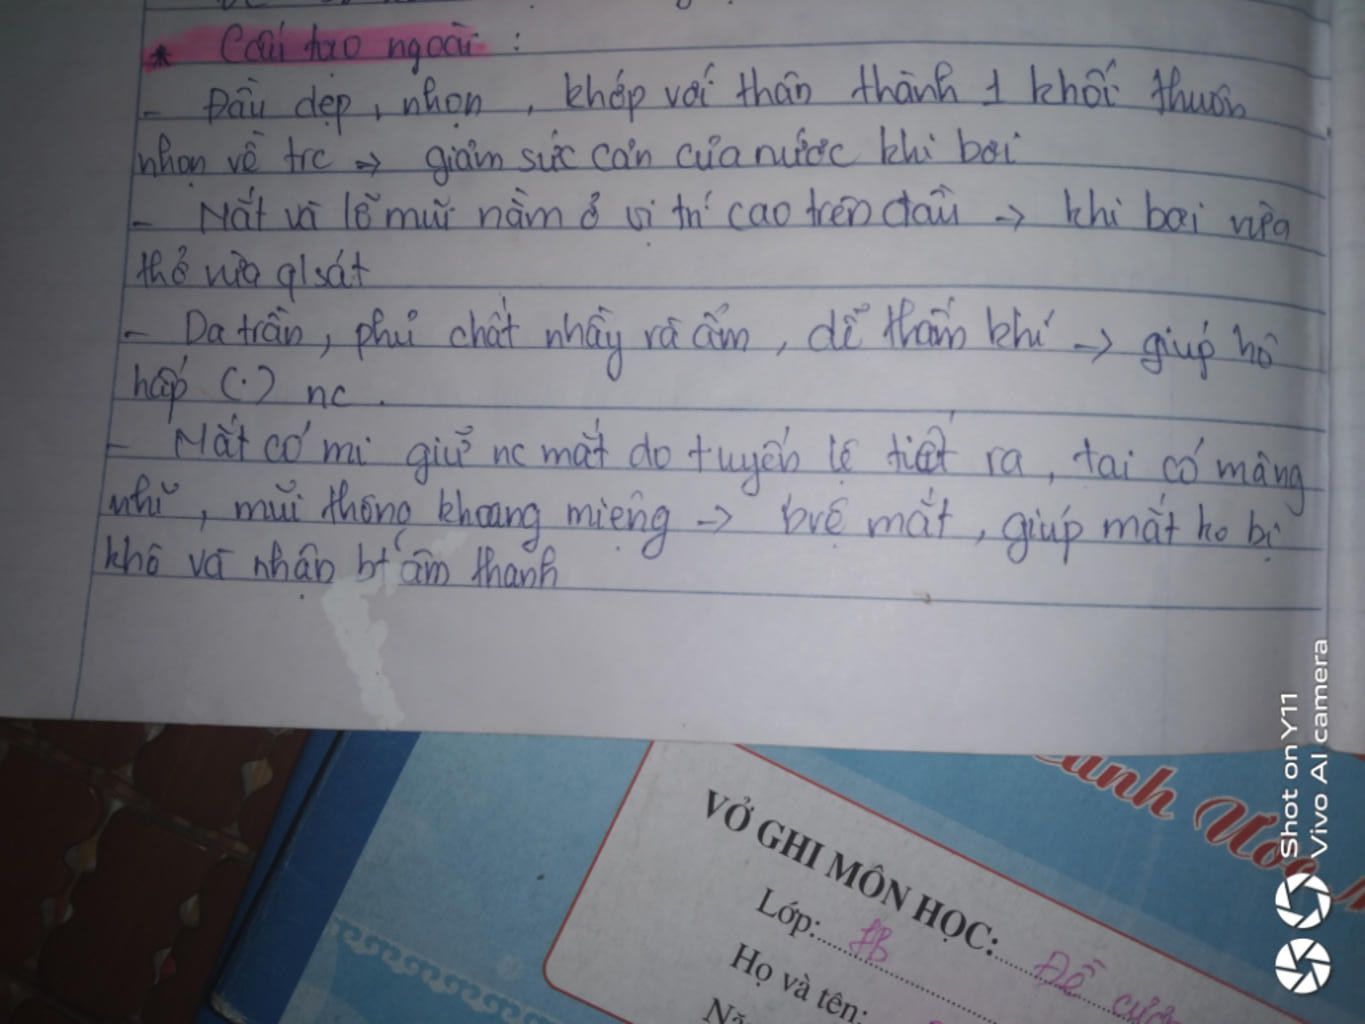 * Cấu tạo ngoài :
- Đầu dẹp, nhọn, khớp với thân thành 1 khối thuôn
nhọn về trc => giảm sức cản của nước khi bơi
- Mắt và lỗ mũi nằm ở vị trí cao trên đầu -> khi bơi vừa
thở vừa q/sát
- Da trần, phủ chất nhầy và ẩm, dễ thấm khí -> giúp hô
hấp (.) nc.
- Mắt có mi giữ nc mắt do tuyến lệ tiết ra, tai có màng
nhĩ, mũi thông khoang miệng -> bvệ mắt, giúp mắt ko bị
khô và nhận bt âm thanh
VỞ GHI MÔN HỌC: Đề cương
Lớp:
Họ và tên:
Shot on Y11
Vivo AI camera